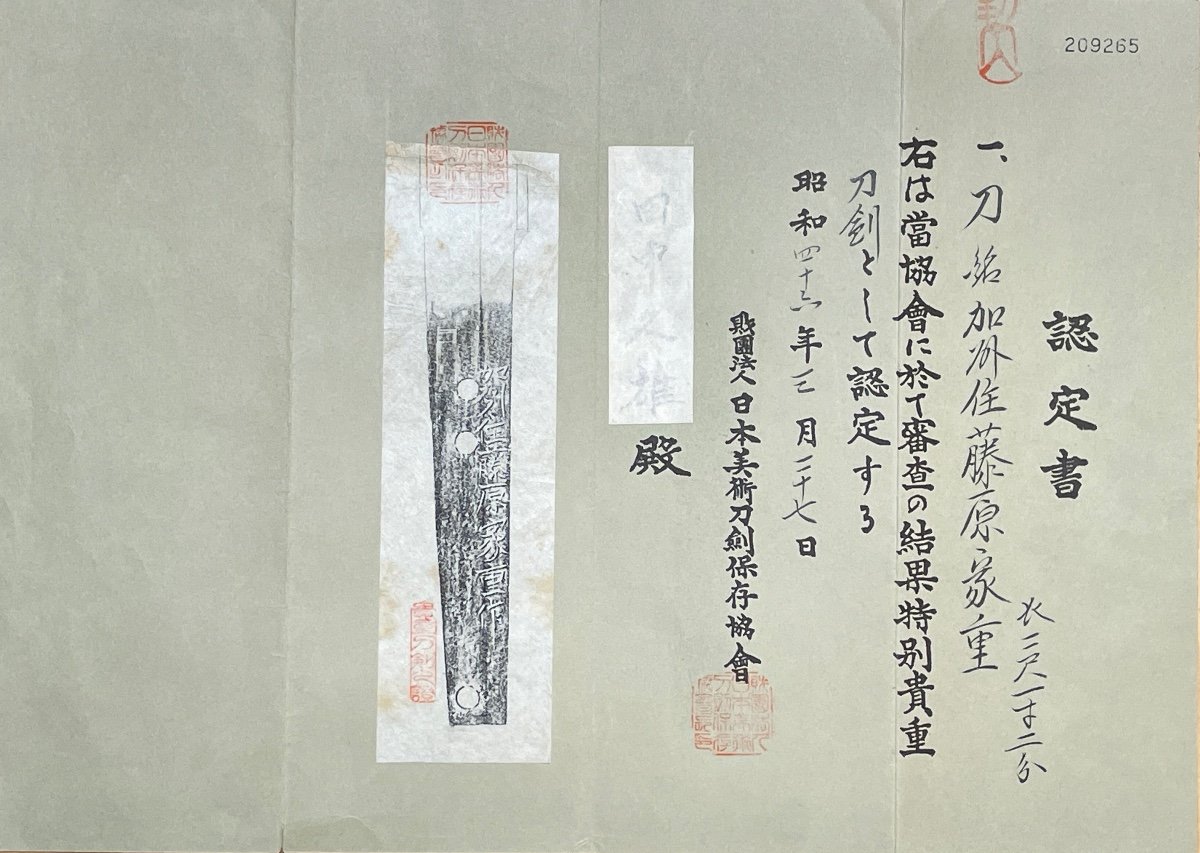 209265
認定書
一、刀 銘 加州住藤原家重
長二尺一寸二分
右は當協會に於て審査の結果特別貴重
刀劍として認定する
昭和四十六年三月二十七日
財團法人日本美術刀劍保存協會
殿
加州住藤原家重作